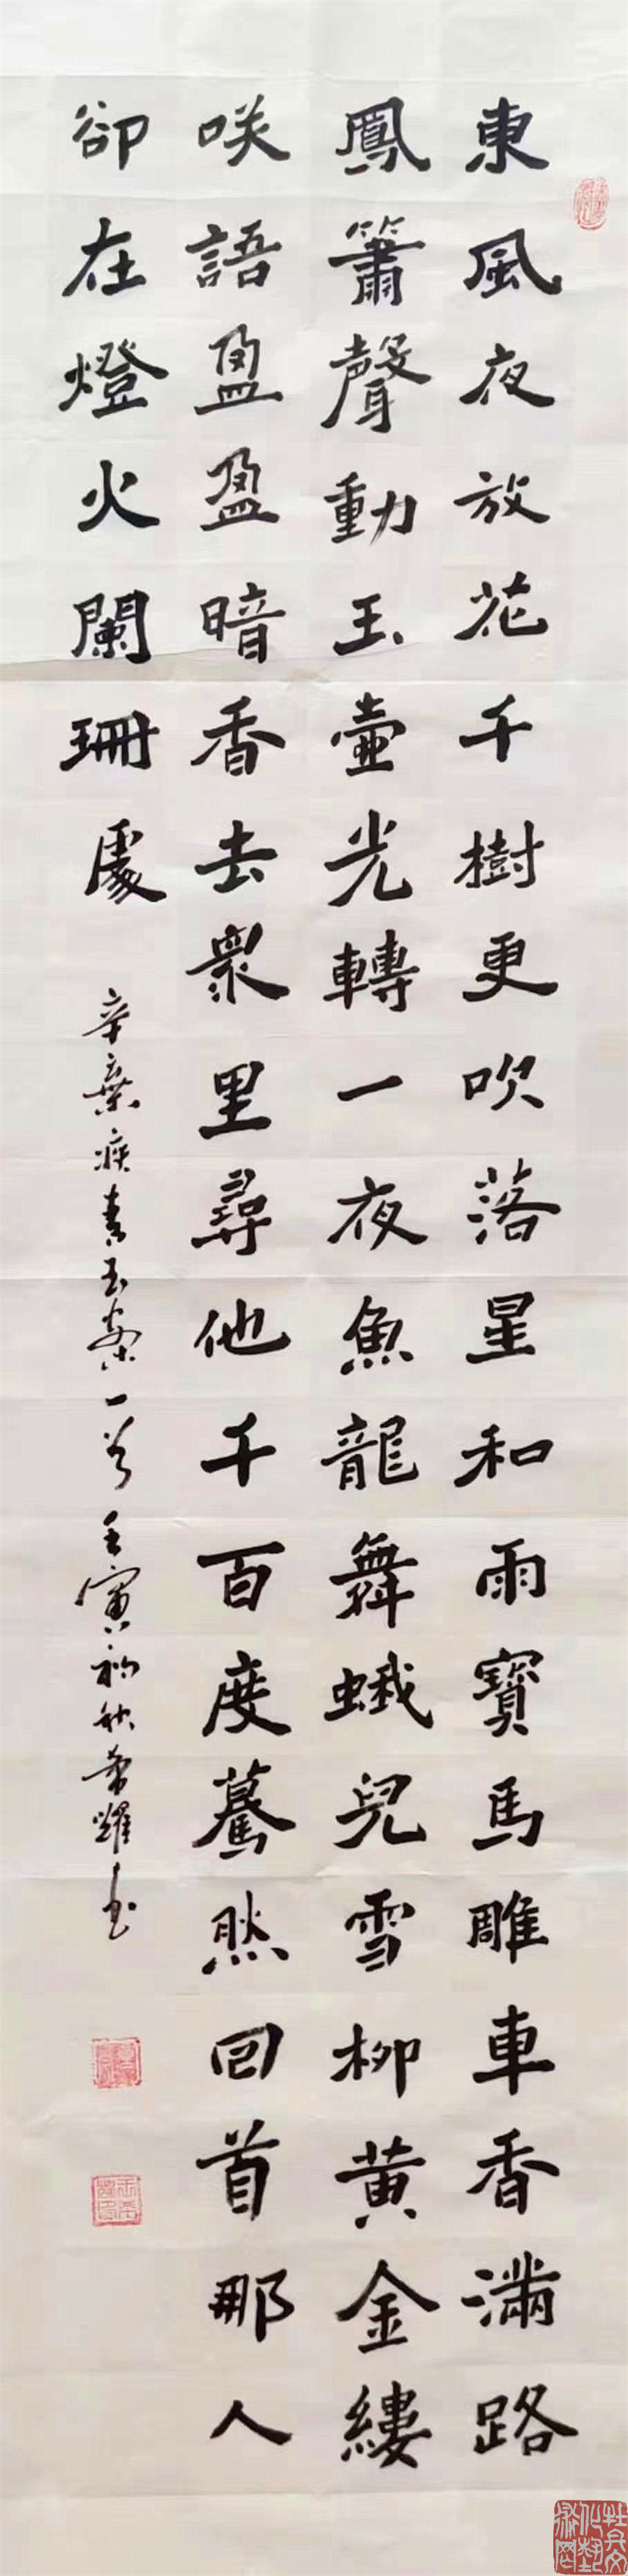 東風夜放花千樹更吹落星和雨寶馬雕車香滿路
鳳簫聲動玉壺光轉一夜魚龍舞蛾兒雪柳黃金縷
咲語盈盈暗香去衆里尋他千百度驀然回首那人
卻在燈火闌珊處
辛棄疾青玉案一首壬寅初秋希耀書